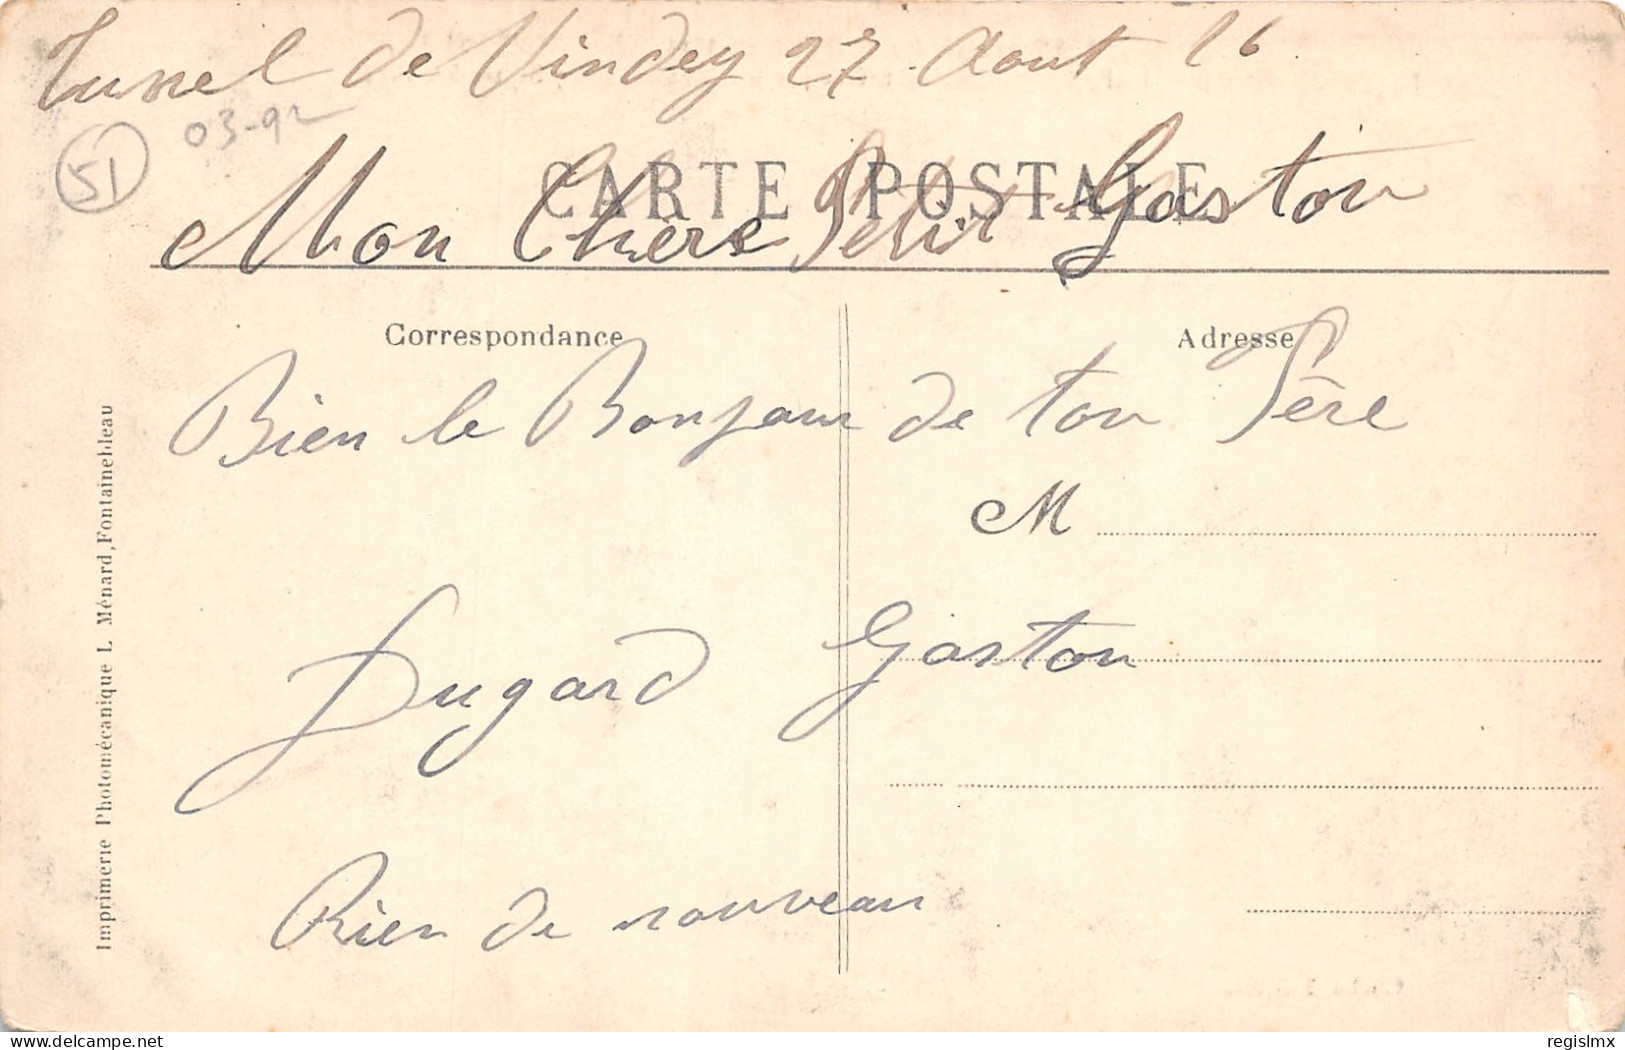 Tunel de Vindey 27 Aout 16
51
03-92
CARTE POSTALE
Mon Chère Petit Gaston
Correspondance
Adresse
Bien le Bonjour de ton Père
M
Dugard Gaston
Rien de nouveau
Imprimerie Photomécanique L. Ménard, Fontainebleau
delcampe.net
regislmx